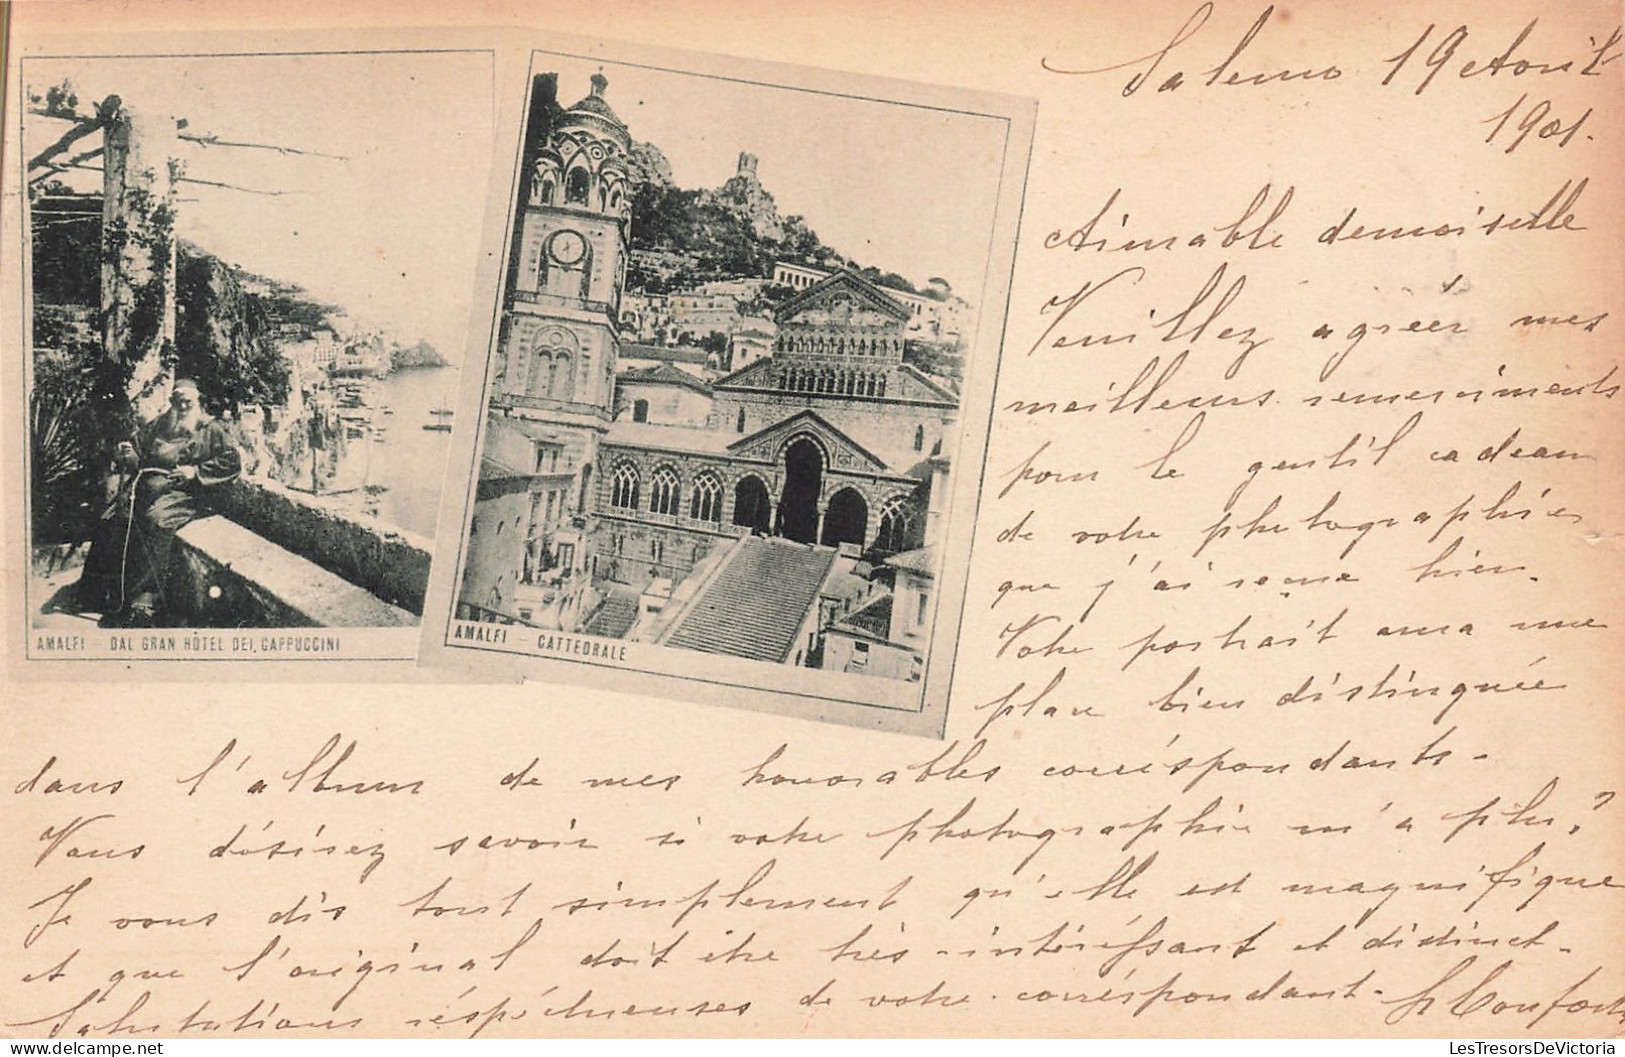 Salerno 19 Avril
1901.
Aimable demoiselle
Veuillez agréér mes
meilleurs remercîments
pour le gentil cadeau
de votre photographie
que j'ai reçue hier.
Votre portrait aura une
place bien distinguée
dans l'album de mes honorables corréspondants.
Vous désirez savoir si votre photographie m'a plu?
Je vous dis tout simplement qu'elle est magnifique
et que l'original doit être très intéréssant et distinct.
Salutations réspéctueuses de votre corréspondant.
AMALFI - DAL GRAN HÔTEL DEI CAPPUCCINI
AMALFI - CATTEDRALE
LesTresorsDeVictoria